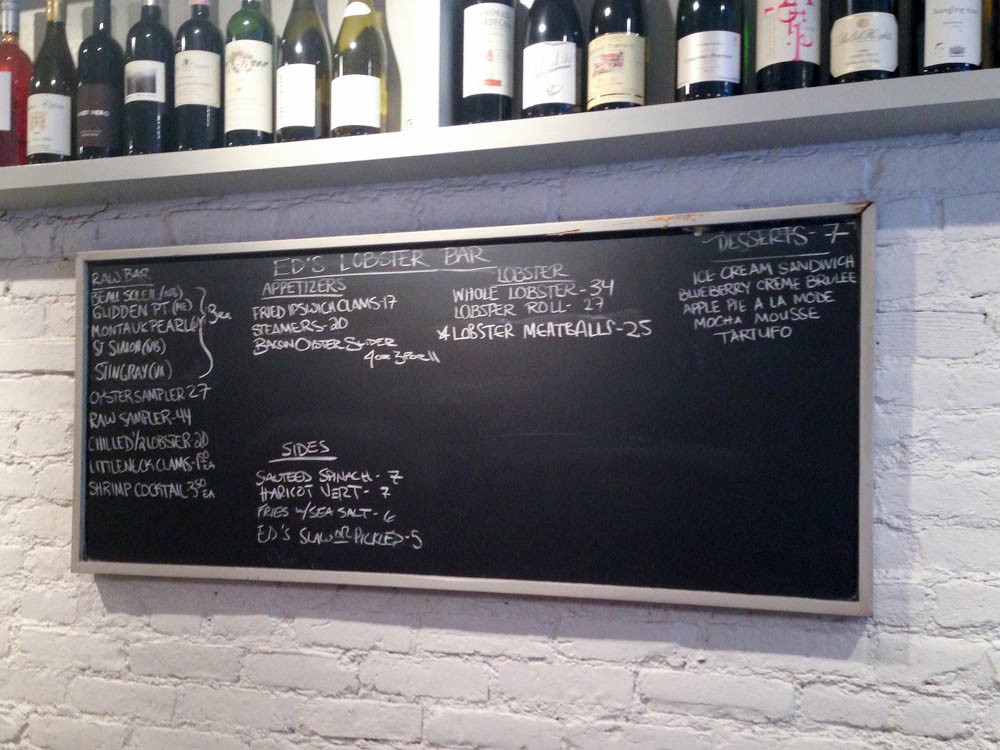 ED'S LOBSTER BAR
RAW BAR
BEAU SOLEIL (NB)
GLIDDEN PT (ME)
MONTAUK PEARL
ST SIMON (NB)
STINGRAY (VA)
3ea
OYSTER SAMPLER 27
RAW SAMPLER-44
CHILLED 1/2 LOBSTER-20
LITTLENECK CLAMS-1.50 EA
SHRIMP COCKTAIL 3.50 EA
APPETIZERS
FRIED IPSWICH CLAMS-17
STEAMERS-20
BACON OYSTER SLIDER
4 one 3 for 11
SIDES
SAUTEED SPINACH - 7
HARICOT VERT - 7
FRIES W/ SEA SALT - 6
ED'S SLAW OR PICKLES-5
LOBSTER
WHOLE LOBSTER-34
LOBSTER ROLL- 27
*LOBSTER MEATBALLS-25
DESSERTS - 7
ICE CREAM SANDWICH
BLUEBERRY CREME BRULEE
APPLE PIE A LA MODE
MOCHA MOUSSE
TARTUFO